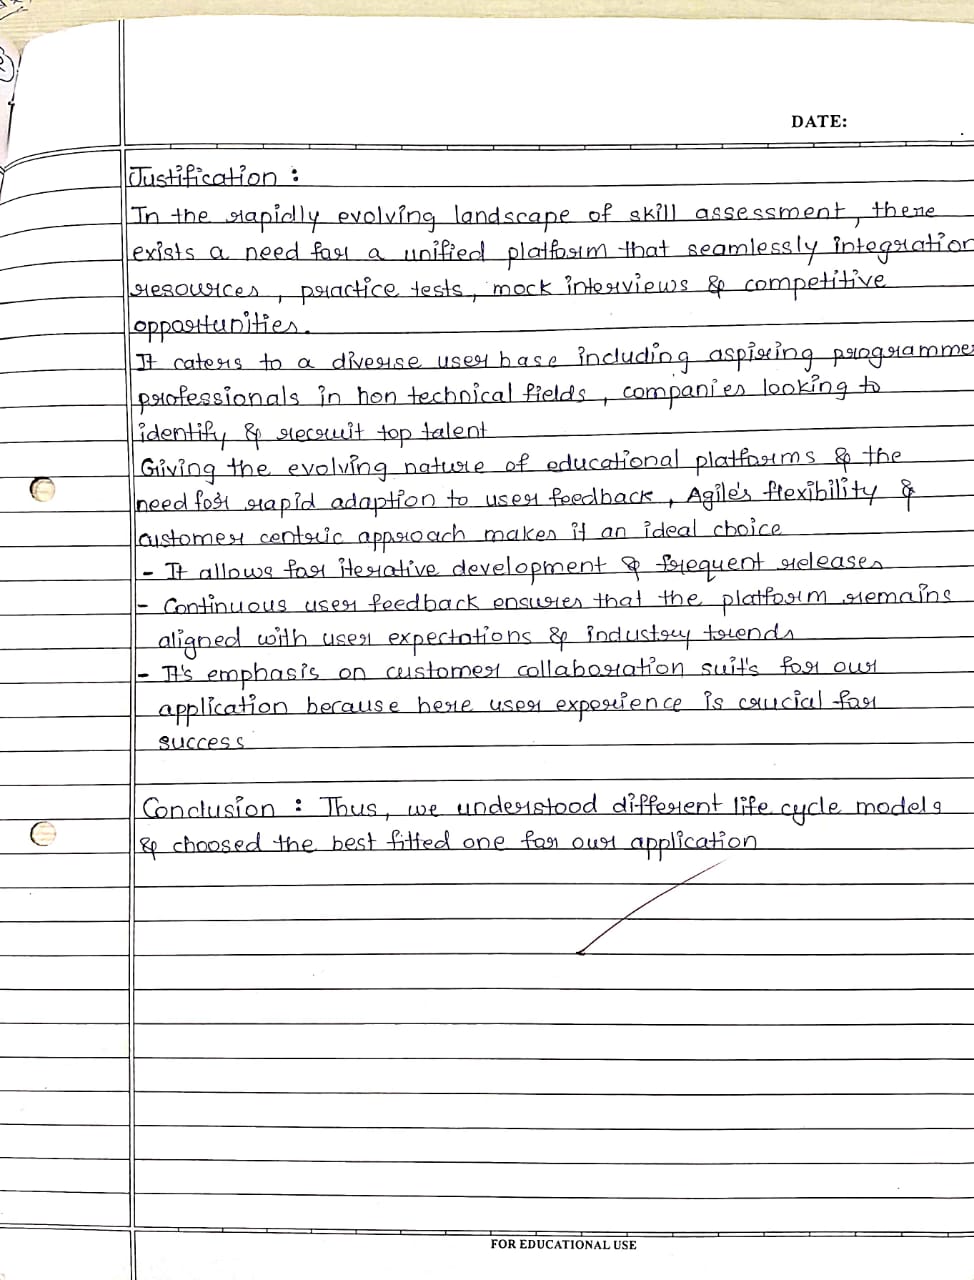 DATE:
Justification :
In the rapidly evolving landscape of skill assessment, there
exists a need for a unified platform that seamlessly integration
resources, practice tests, mock interviews & competitive
opportunities.
It caters to a diverse user base including aspiring programme
professionals in non technical fields, companies looking to
identify & recruit top talent
Giving the evolving nature of educational platforms & the
need for rapid adaption to user feedback, Agile's flexibility &
customer centric approach makes it an ideal choice
- It allows for iterative development & frequent releases
- Continuous user feedback ensures that the platform remains
aligned with user expectations & industry trends
- It's emphasis on customer collaboration suit's for our
application because here user experience is crucial for
success
Conclusion : Thus, we understood different life cycle models
& choosed the best fitted one for our application
FOR EDUCATIONAL USE